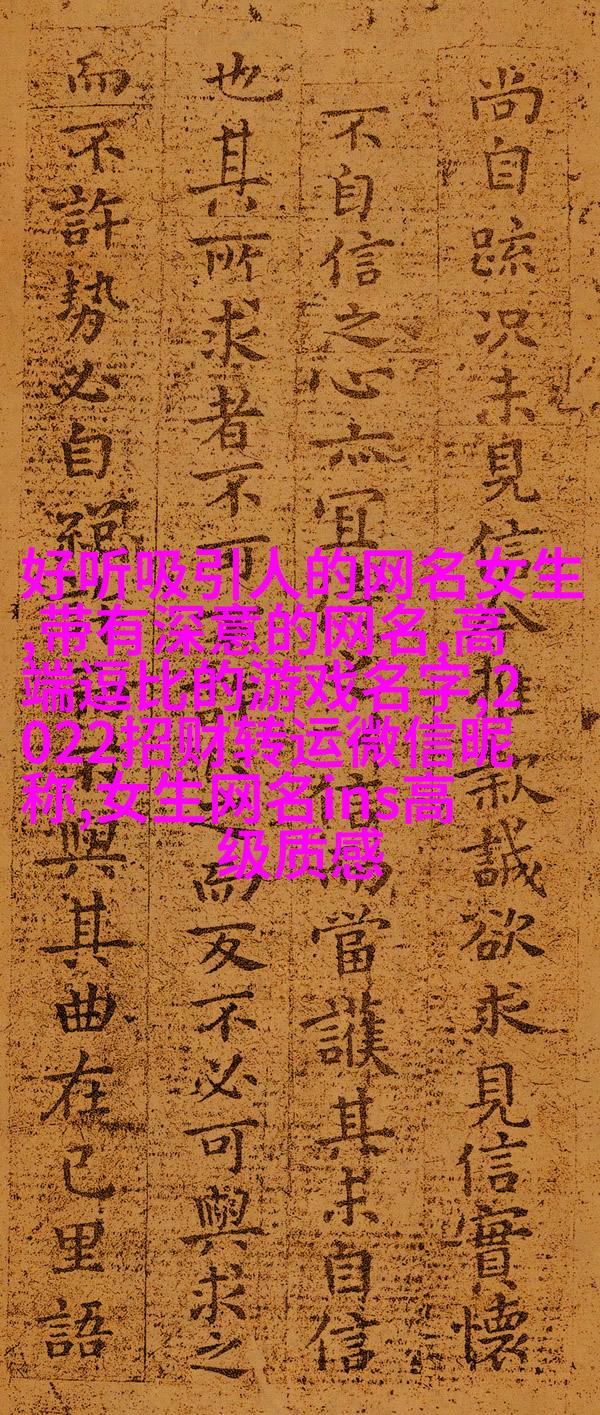 尚自疏況未見信今推款誠欲求見信實懷
不自信之心亦宜信而當護其未自信
也其所求者不可之而反不必可與求之
而不許勢必自絕不與其曲在己里語
好听吸引人的网名女生
,带有深意的网名,高
端逗比的游戏名字,2
022招财转运微信昵
称,女生网名ins高
级质感